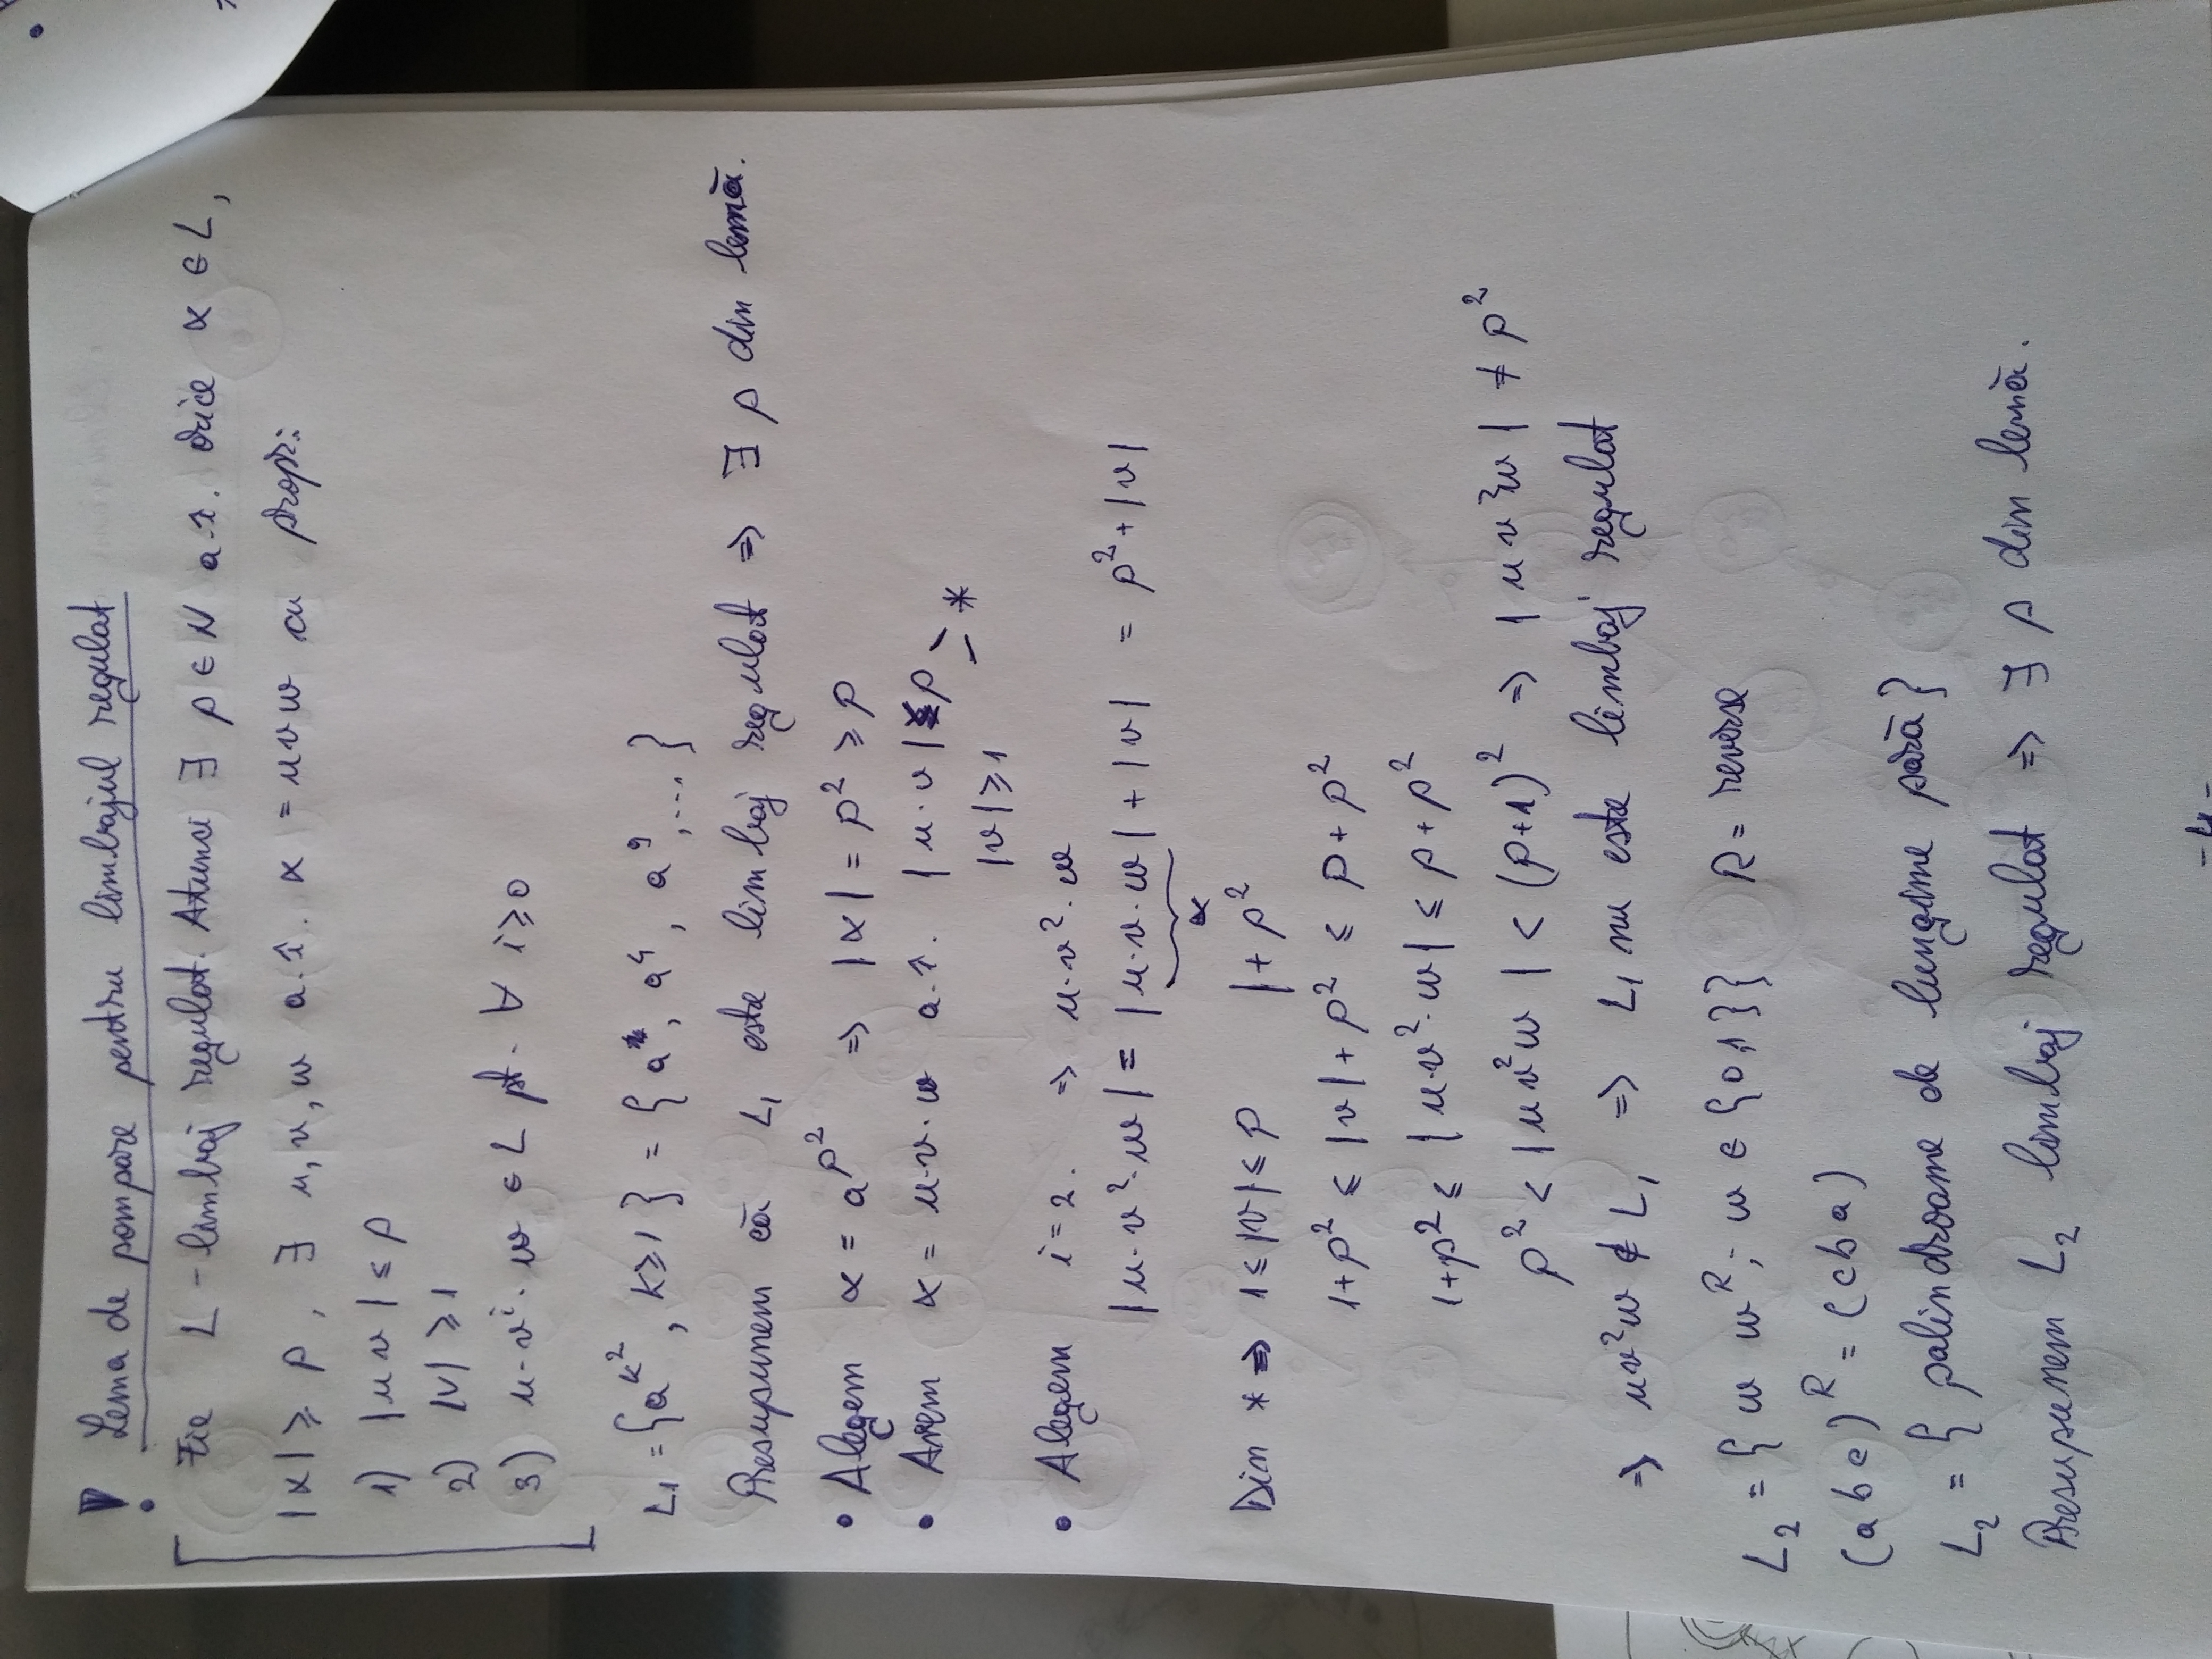 ! Lema de pompare pentru limbajul regulat
Fie L - limbaj regulat. Atunci ∃ p ∈ N a.î. orice α ∈ L,
|α| ≥ p, ∃ u, v, w a.î. α = uvw cu propr:
1) |uv| ≤ p
2) |v| ≥ 1
3) u·vⁱ·w ∈ L pt. ∀ i ≥ 0
L₁ = {a^{k²}, k ≥ 1} = {a, a⁴, a⁹, ...}
Presupunem că L₁ este limbaj regulat ⇒ ∃ p din lemă.
• Alegem α = a^{p²} ⇒ |α| = p² ≥ p
• Avem α = u·v·w a.î. |u·v| ≤ p
|v| ≥ 1 > *
• Alegem i = 2. ⇒ u·v²·w
|u·v²·w| = |u·v·w| + |v| = p² + |v|
α
Din * ⇒ 1 ≤ |v| ≤ p |+ p²
1 + p² ≤ |v| + p² ≤ p + p²
1 + p² ≤ |u·v²·w| ≤ p + p²
p² < |uv²w| < (p+1)² ⇒ |uv²w| ≠ p²
⇒ uv²w ∉ L₁ ⇒ L₁ nu este limbaj regulat
L₂ = {w w^R; w ∈ {0,1}} R = reverse
(abc)^R = (cba)
L₂ = {palindroame de lungime pară}
Presupunem L₂ limbaj regulat ⇒ ∃ p din lemă.
-4-